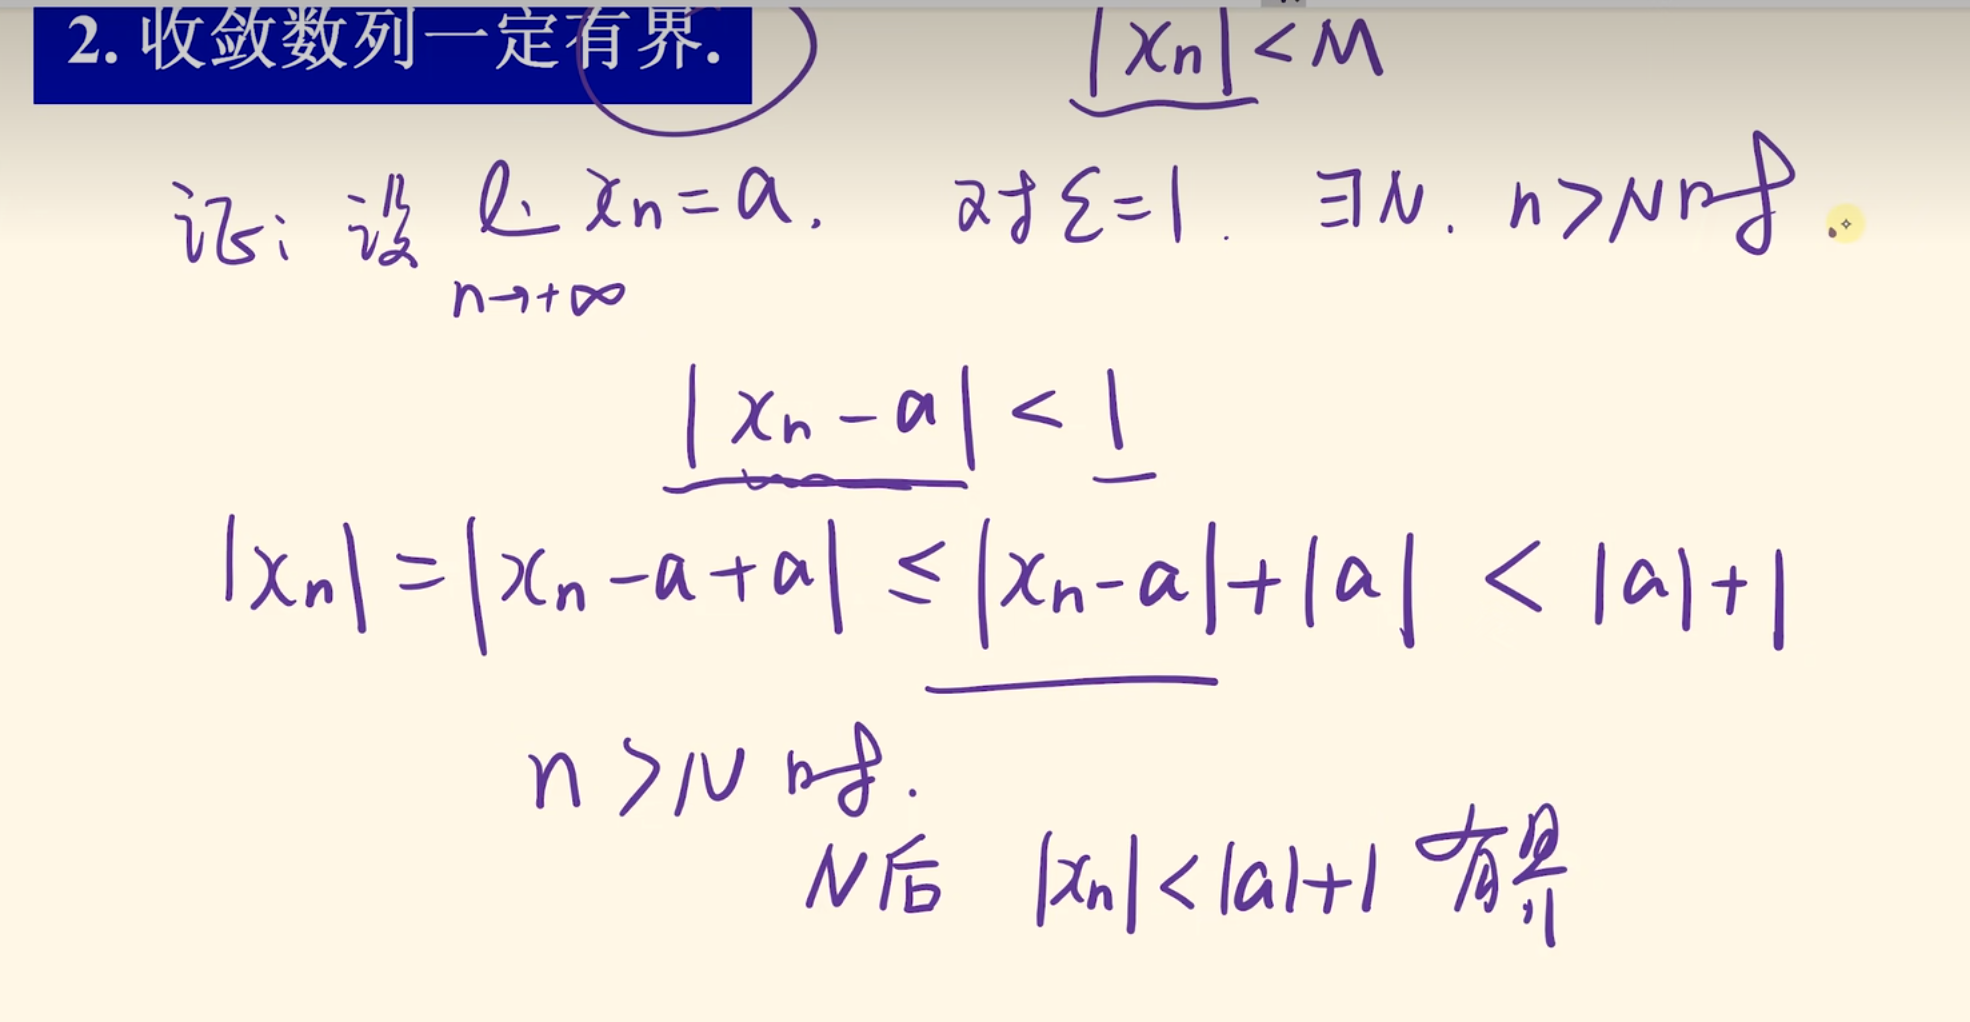 2. 收敛数列一定有界. |xn| < M
证: 设 lim xn = a. 对 ε=1. ∃N. n>N时.
n→+∞
|xn-a| < 1
|xn| = |xn-a+a| ≤ |xn-a|+|a| < |a|+1
n>N时.
N后 |xn|<|a|+1 有界